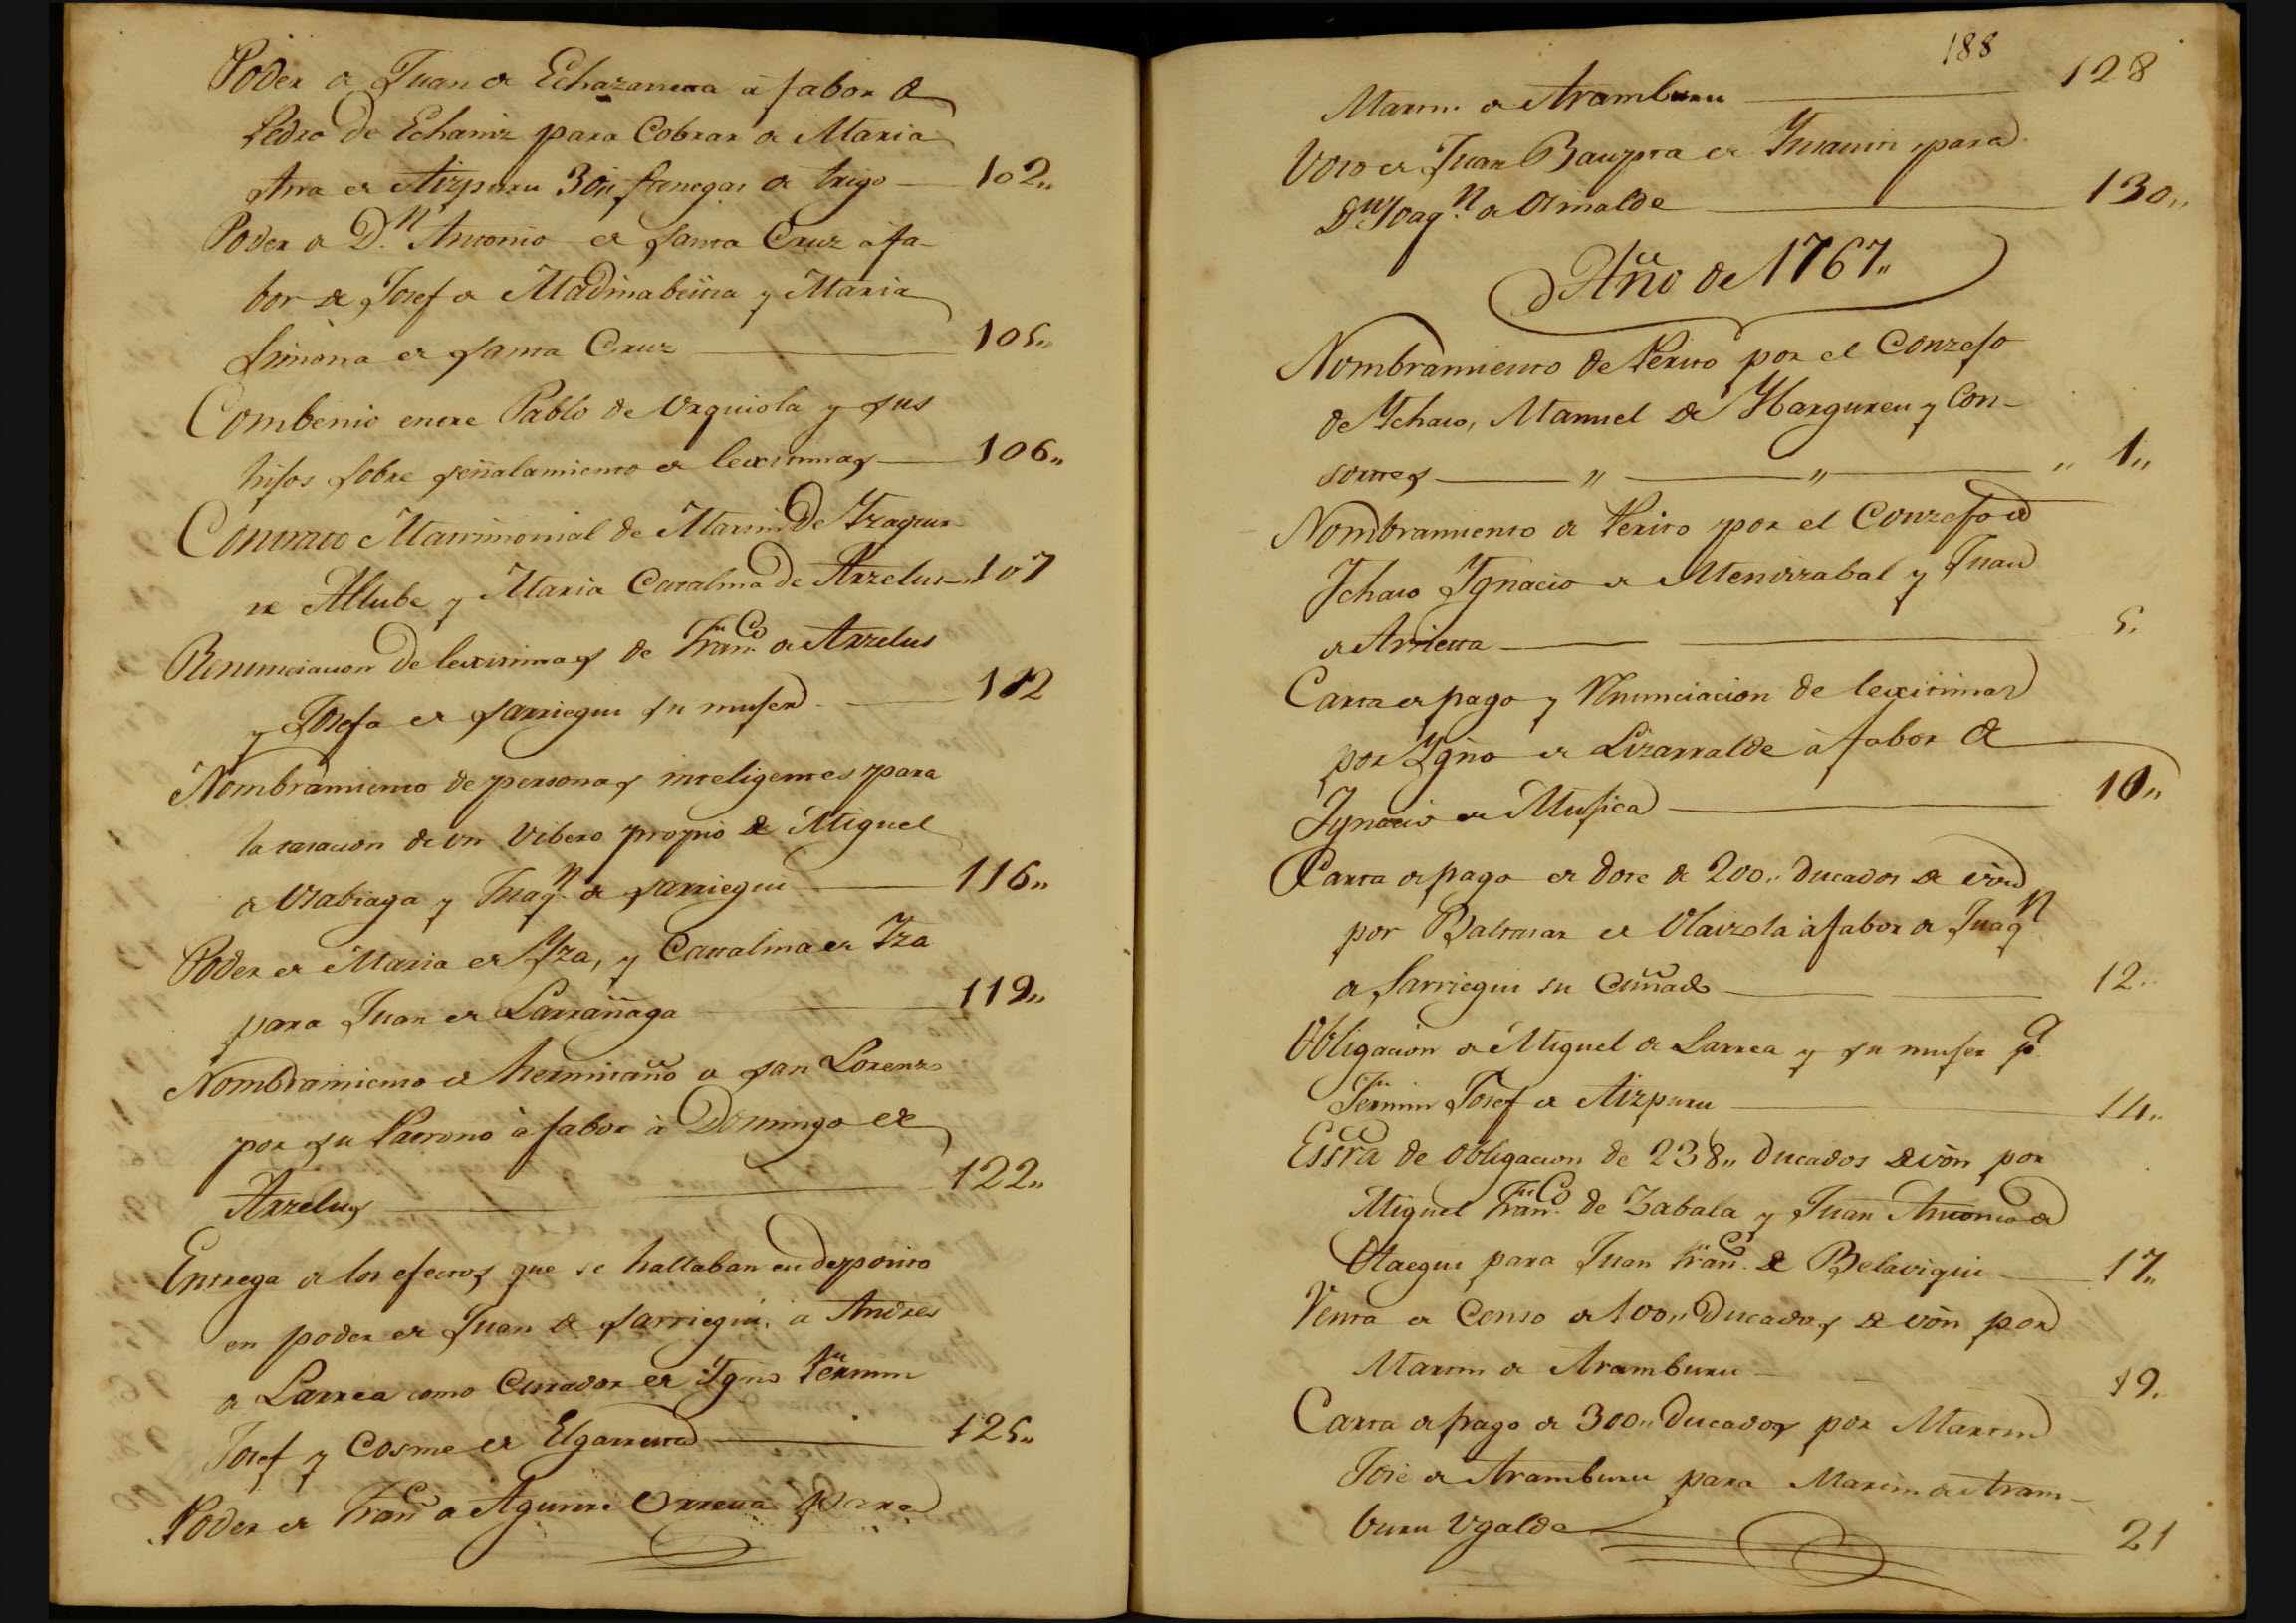 Poder de Juan de Echazarreta à fabor de
Pedro de Echaniz para Cobrar de Maria
Ana de Aizpuru 30,, fanegas de trigo — 102,,
Poder de D.n Antonio de Santa Cruz à fa-
bor de Josef de Madinabeitia y Maria
Simona de Santa Cruz — 105,,
Combenio entre Pablo de Urquiola y sus
hijos sobre señalamiento de lexitimas — 106,,
Contrato Matrimonial de Martin De Yraguir-
re Allube y Maria Catalina de Arzelus — 107
Renunciacion De lexitimas de Fran.co de Arzelus
y Josefa de Sarriegui su muger — 112
Nombramiento de personas inteligentes para
la tasacion de un Vibero propio de Miguel
de Urabiaga y Juaq.n de Sarriegui — 116,,
Poder de Maria de Yza, y Catalina de Yza
para Juan de Larrañaga — 119,,
Nombramiento de hermitaño de San Lorenzo
por su Patrono à fabor à Domingo de
Arzelus — 122,,
Entrega de los efectos que se hallaban en deposito
en poder de Juan de Sarriegui, à Andres
de Larrea como Curador de Ygno Fermin
Josef y Cosme de Elgarreta — 125,,
Poder de Franco de Aguirre Orreua para
188
Martin de Aramburu — 128
Voto de Juan Bauptta de para
Dn Joaq.n de Olmalde — 130,,
Año de 1767,,
Nombramiento de Perito por el Conzejo
de Ychaso, Manuel de Harguren y Con-
sortes — ,, — ,, — ,, 1,,
Nombramiento de Perito por el Conzejo de
Ychaso Ygnacio de Mendizabal y Juan
de Arrieta — 5.
Carta de pago y Renunciacion de lexitimas
por Ygno de Lizarralde à fabor de
Ygnacio de Mugica — 10,,
Carta de pago de dote de 200,, Ducados de von
por Baltasar de Olaizola à fabor de Juaq.n
de Sarriegui su Cuñado — 12..
Obligacion de Miguel de Larrea y su muger pa.
Fermin Josef de Aizpuru — 14,,
Essra de obligacion de 238,, Ducados de von por
Miguel Fran.co de Zabala y Juan Antonio de
Otaegui para Juan Fran.co de Belaoigui — 17,,
Venta de Censo de 100,, Ducados de von por
Martin de Aramburu — 19,,
Carta de pago de 300,, Ducados por Martin
José de Aramburu para Martin de Aram-
buru Ugalde — 21